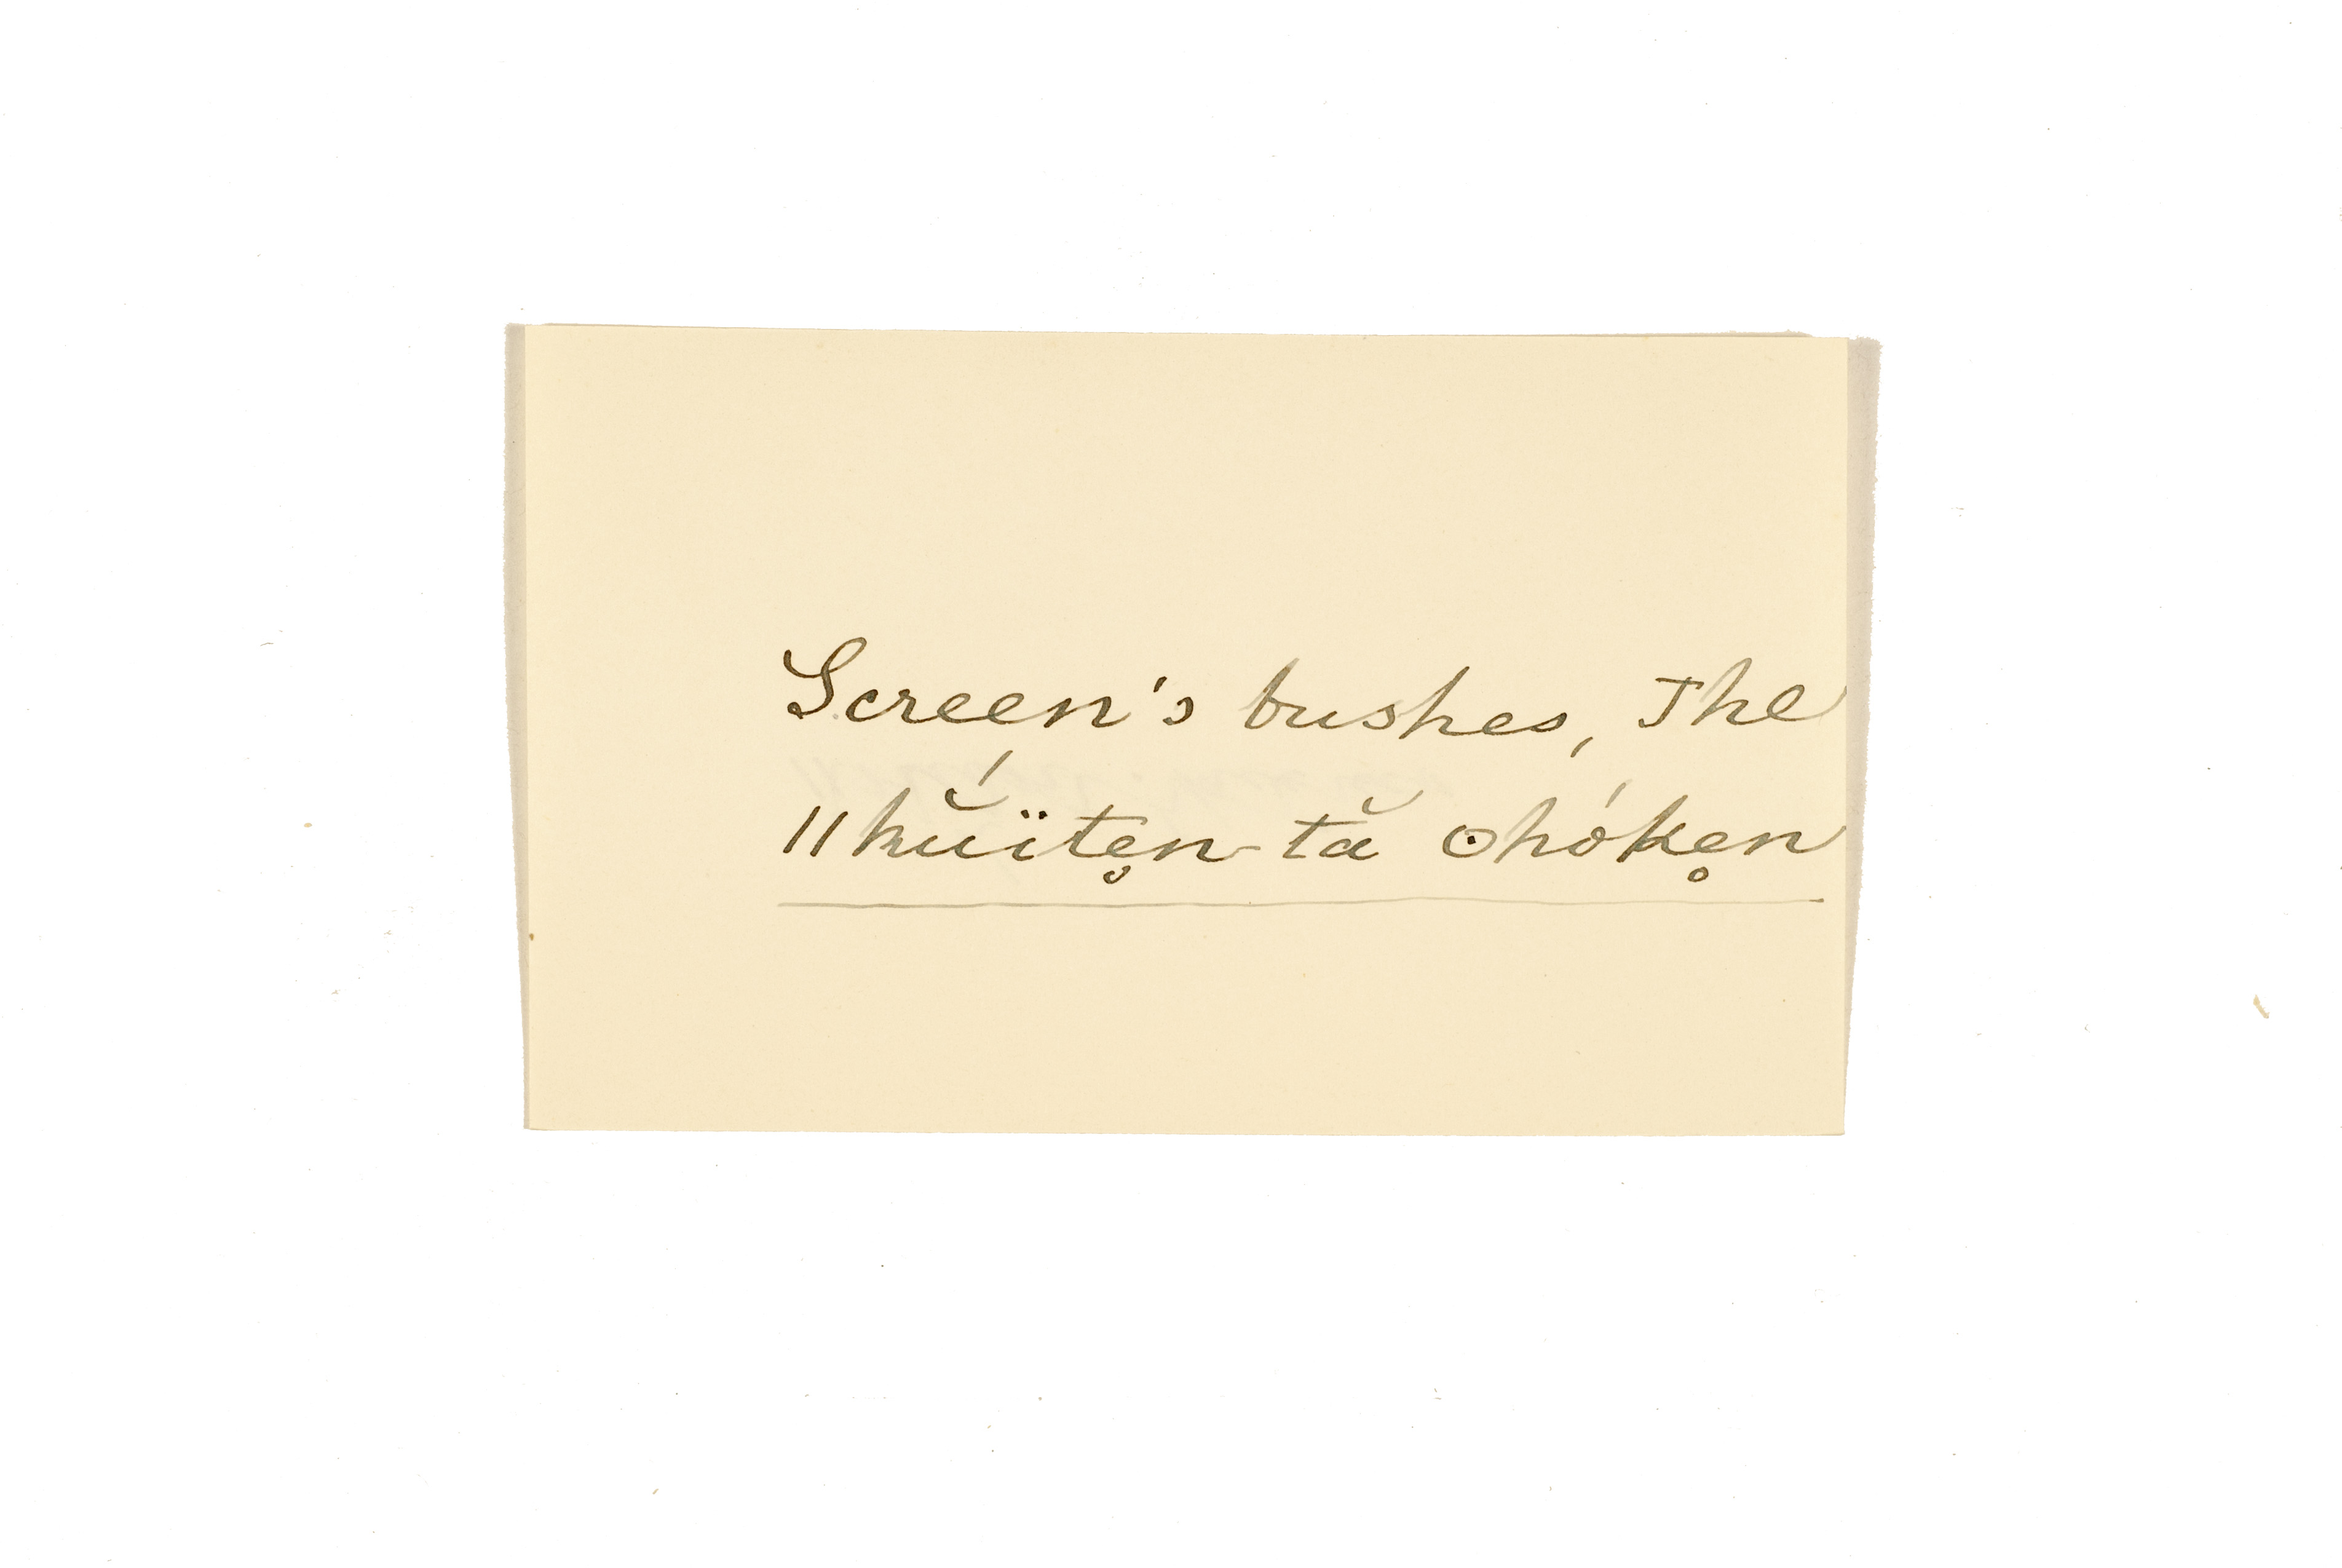 Screen's bushes, The
ǁkŭ́ïten̥ tă ʘhóke̥n